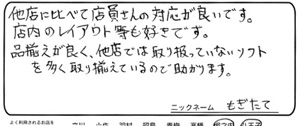 他店に比べて店員さんの対応が良いです。
店内のレイアウト等も好きです。
品揃えが良く、他店では取り扱っていないソフト
を多く取り揃えているので助かります。
ニックネーム もぎたて
よく利用されるお店を